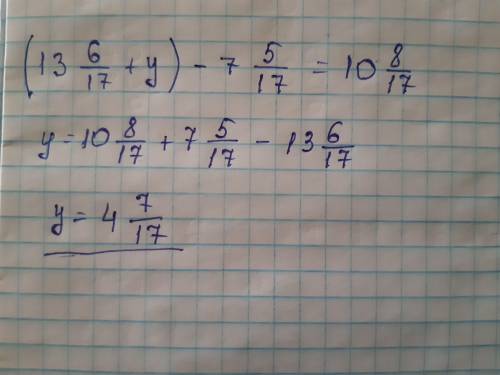 (13 6/17 + y) - 7 5/17 = 10 8/17
y = 10 8/17 + 7 5/17 - 13 6/17
y = 4 7/17